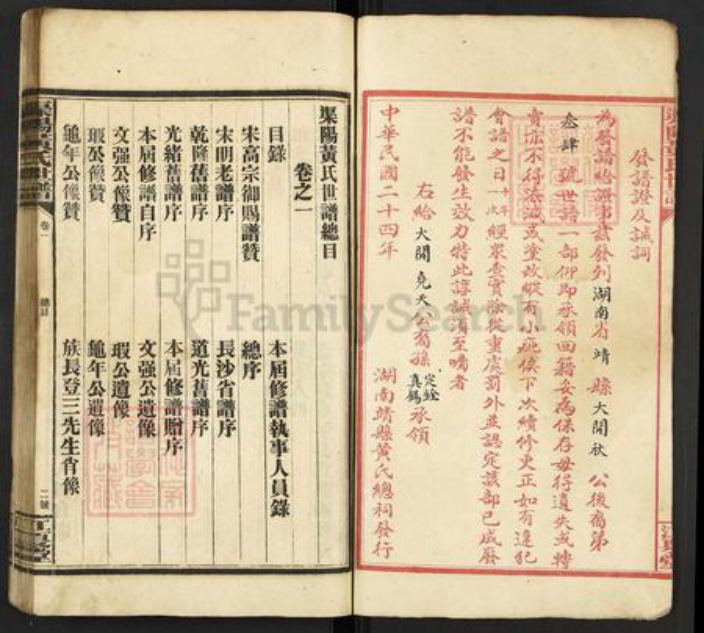 發譜證及誡詞
為發譜給證事茲發到湖南省靖縣大開狀公後裔第
叁肆號世譜一部仰即承領回籍妥為保存毋得遺失或轉
賣亦不得添減或塗改縱有小疵俟下次續修更正如有違犯
會譜之日十年一次經眾查實除從重處罰外並認定該部已成廢
譜不能發生效力特此諄誡須至囑者
右給大開堯天公裔孫定銓真錫承領
中華民國二十四年 湖南靖縣黃氏總祠發行
渠陽黃氏世譜總目
卷之一
目錄 本屆修譜執事人員錄
宋高宗御賜譜贊 總序
宋明老譜序 長沙省譜序
乾隆舊譜序 道光舊譜序
光緒舊譜序 本屆修譜贈序
本屆修譜自序 文强公遺像
文强公像贊 瑕公遺像
瑕公像贊 龜年公遺像
龜年公像贊 族長登三先生肖像
渠陽黃氏世譜 卷一 總目 二號
FamilySearch